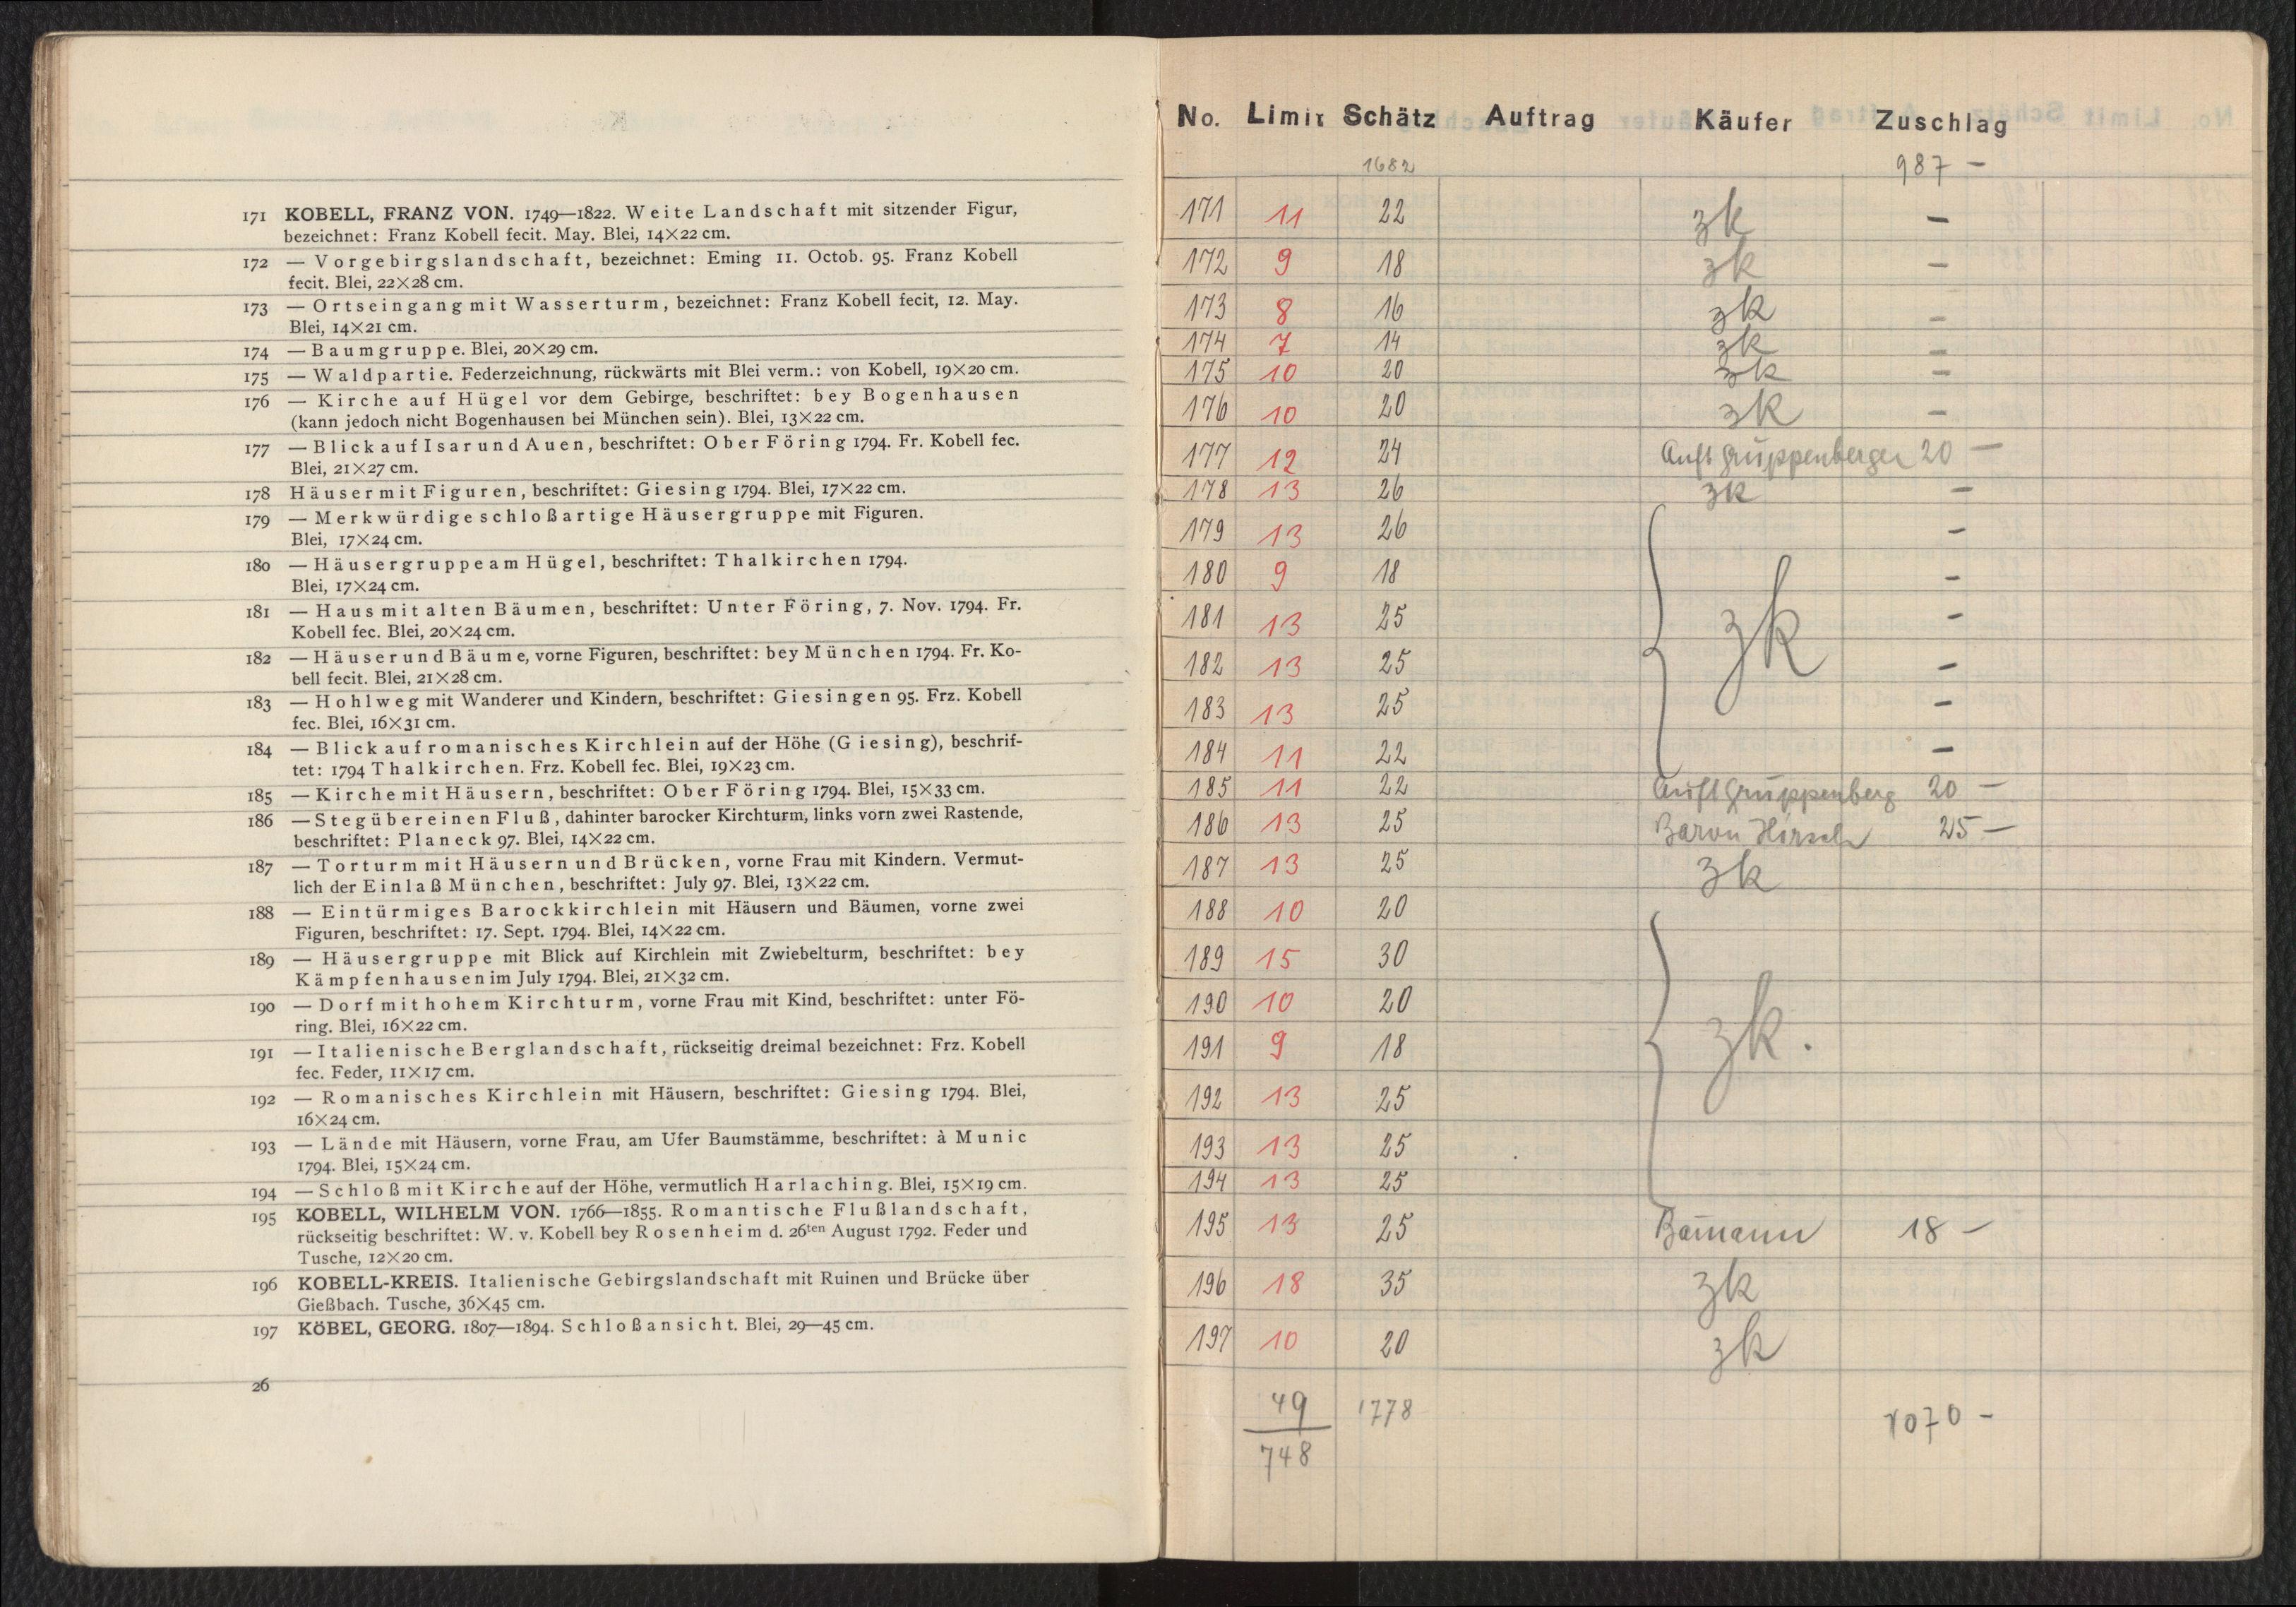 171 KOBELL, FRANZ VON. 1749—1822. Weite Landschaft mit sitzender Figur,
bezeichnet: Franz Kobell fecit. May. Blei, 14×22 cm.
172 — Vorgebirgslandschaft, bezeichnet: Eming 11. Octob. 95. Franz Kobell
fecit. Blei, 22×28 cm.
173 — Ortseingang mit Wasserturm, bezeichnet: Franz Kobell fecit, 12. May.
Blei, 14×21 cm.
174 — Baumgruppe. Blei, 20×29 cm.
175 — Waldpartie. Federzeichnung, rückwärts mit Blei verm.: von Kobell, 19×20 cm.
176 — Kirche auf Hügel vor dem Gebirge, beschriftet: bey Bogenhausen
(kann jedoch nicht Bogenhausen bei München sein). Blei, 13×22 cm.
177 — Blick auf Isar und Auen, beschriftet: Ober Föring 1794. Fr. Kobell fec.
Blei, 21×27 cm.
178 Häuser mit Figuren, beschriftet: Giesing 1794. Blei, 17×22 cm.
179 — Merkwürdige schloßartige Häusergruppe mit Figuren.
Blei, 17×24 cm.
180 — Häusergruppe am Hügel, beschriftet: Thalkirchen 1794.
Blei, 17×24 cm.
181 — Haus mit alten Bäumen, beschriftet: Unter Föring, 7. Nov. 1794. Fr.
Kobell fec. Blei, 20×24 cm.
182 — Häuser und Bäume, vorne Figuren, beschriftet: bey München 1794. Fr. Ko-
bell fecit. Blei, 21×28 cm.
183 — Hohlweg mit Wanderer und Kindern, beschriftet: Giesingen 95. Frz. Kobell
fec. Blei, 16×31 cm.
184 — Blick auf romanisches Kirchlein auf der Höhe (Giesing), beschrif-
tet: 1794 Thalkirchen. Frz. Kobell fec. Blei, 19×23 cm.
185 — Kirche mit Häusern, beschriftet: Ober Föring 1794. Blei, 15×33 cm.
186 — Steg über einen Fluß, dahinter barocker Kirchturm, links vorn zwei Rastende,
beschriftet: Planeck 97. Blei, 14×22 cm.
187 — Torturm mit Häusern und Brücken, vorne Frau mit Kindern. Vermut-
lich der Einlaß München, beschriftet: July 97. Blei, 13×22 cm.
188 — Eintürmiges Barockkirchlein mit Häusern und Bäumen, vorne zwei
Figuren, beschriftet: 17. Sept. 1794. Blei, 14×22 cm.
189 — Häusergruppe mit Blick auf Kirchlein mit Zwiebelturm, beschriftet: bey
Kämpfenhausen im July 1794. Blei, 21×32 cm.
190 — Dorf mit hohem Kirchturm, vorne Frau mit Kind, beschriftet: unter Fö-
ring. Blei, 16×22 cm.
191 — Italienische Berglandschaft, rückseitig dreimal bezeichnet: Frz. Kobell
fec. Feder, 11×17 cm.
192 — Romanisches Kirchlein mit Häusern, beschriftet: Giesing 1794. Blei,
16×24 cm.
193 — Lände mit Häusern, vorne Frau, am Ufer Baumstämme, beschriftet: à Munic
1794. Blei, 15×24 cm.
194 — Schloß mit Kirche auf der Höhe, vermutlich Harlaching. Blei, 15×19 cm.
195 KOBELL, WILHELM VON. 1766—1855. Romantische Flußlandschaft,
rückseitig beschriftet: W. v. Kobell bey Rosenheim d. 26ten August 1792. Feder und
Tusche, 12×20 cm.
196 KOBELL-KREIS. Italienische Gebirgslandschaft mit Ruinen und Brücke über
Gießbach. Tusche, 36×45 cm.
197 KÖBEL, GEORG. 1807—1894. Schloßansicht. Blei, 29—45 cm.
26
No. Limit Schätz Auftrag Käufer Zuschlag
1682 987 —
171 11 22 zk —
172 9 18 zk —
173 8 16 zk —
174 7 14 zk —
175 10 20 zk —
176 10 20 zk —
177 12 24 Auft Gruppenberger 20 —
178 13 26 zk —
179 13 26 —
180 9 18 —
181 13 25 zk —
182 13 25 —
183 13 25 —
184 11 22 —
185 11 22 Auft Gruppenberg 20 —
186 13 25 Baron Hirsch 25 —
187 13 25 zk
188 10 20
189 15 30
190 10 20
191 9 18 zk.
192 13 25
193 13 25
194 13 25
195 13 25 18 —
196 18 35 zk
197 10 20 zk
49 1778 1070 —
748